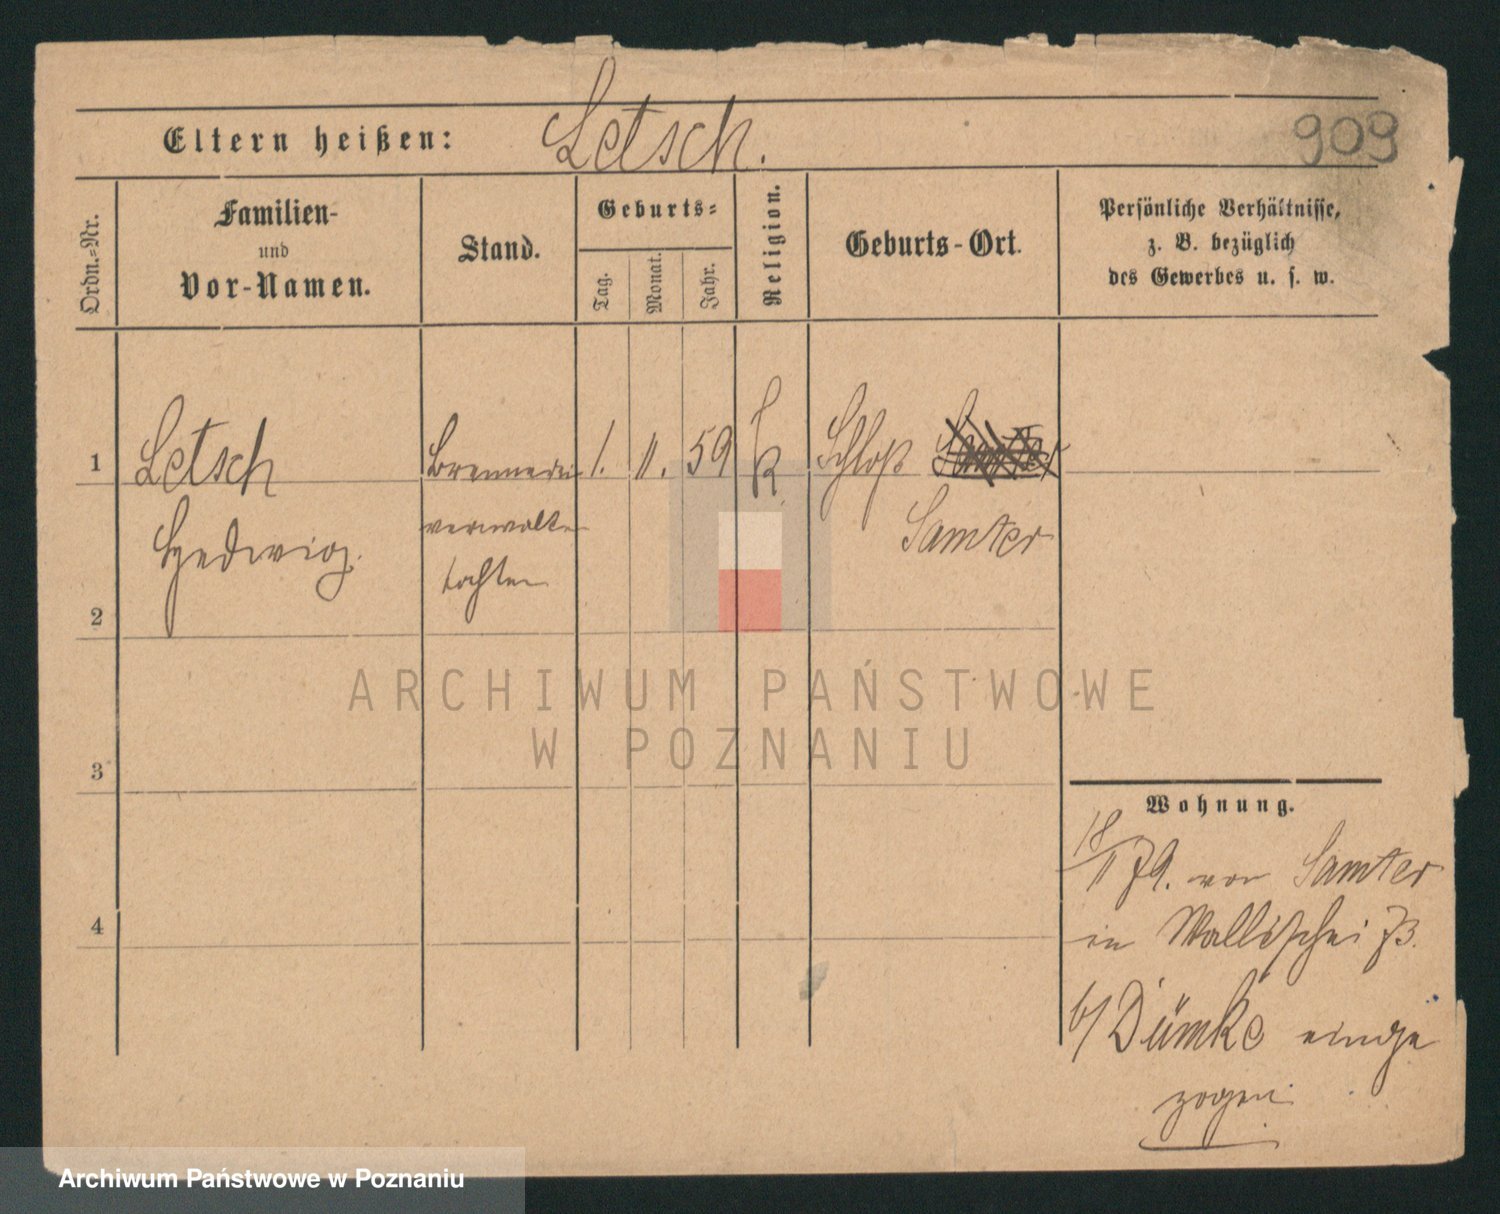 Eltern heißen: Letsch. 909
Ordn.-Nr.
Familien-
und
Vor-Namen.
Stand.
Geburts-
Tag.
Monat.
Jahr.
Religion.
Geburts-Ort.
Persönliche Verhältnisse,
z. B. bezüglich
des Gewerbes u. s. w.
1 Letsch Brennerei 1. 11. 59 k Schloß Samter
Hedwig. verwalter Samter
tochter
2
3
4
Wohnung.
18/11 79. von Samter
in Wallischei 73.
b/ Dümke einge
zogen
ARCHIWUM PAŃSTWOWE
W POZNANIU
Archiwum Państwowe w Poznaniu